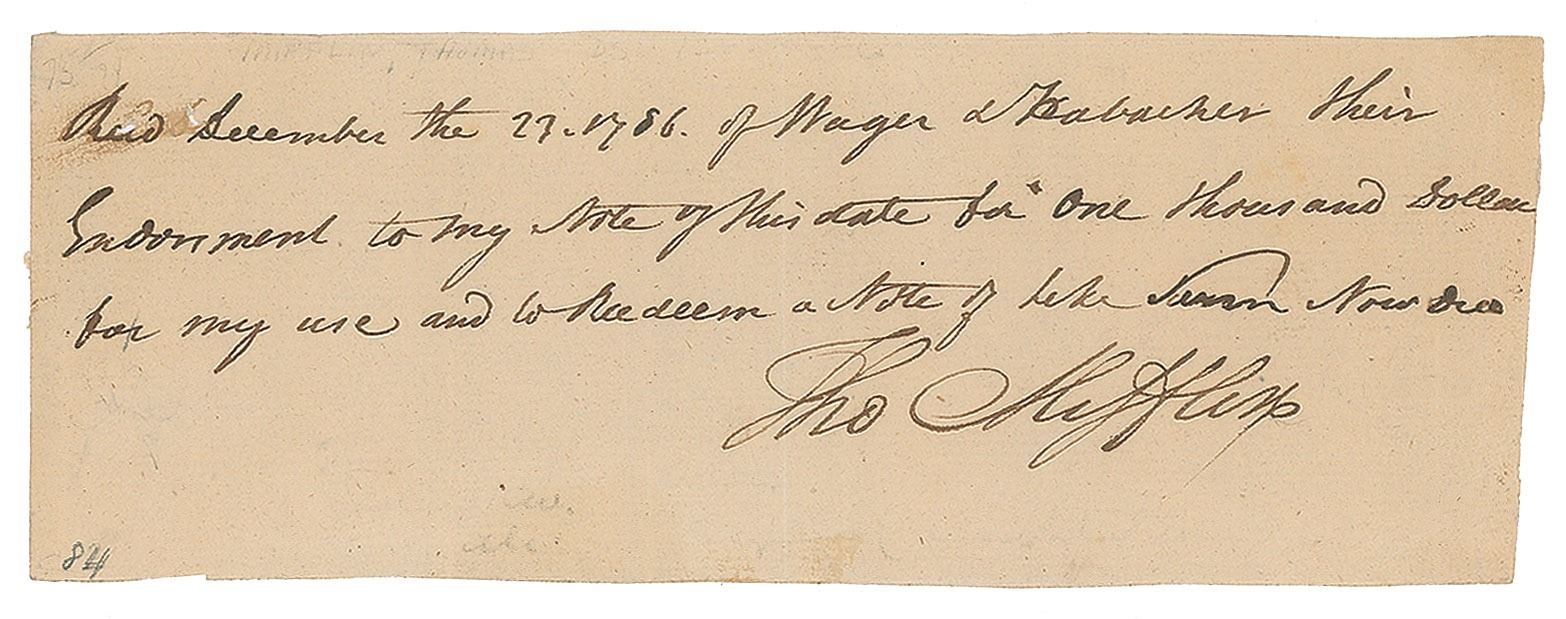 Recd December the 23. 1786. of Wager & Habacker their
Endorsment to my Note of this date for One thousand Dollars
for my use and to Redeem a Note of like Sum Now due
Tho Mifflin
84